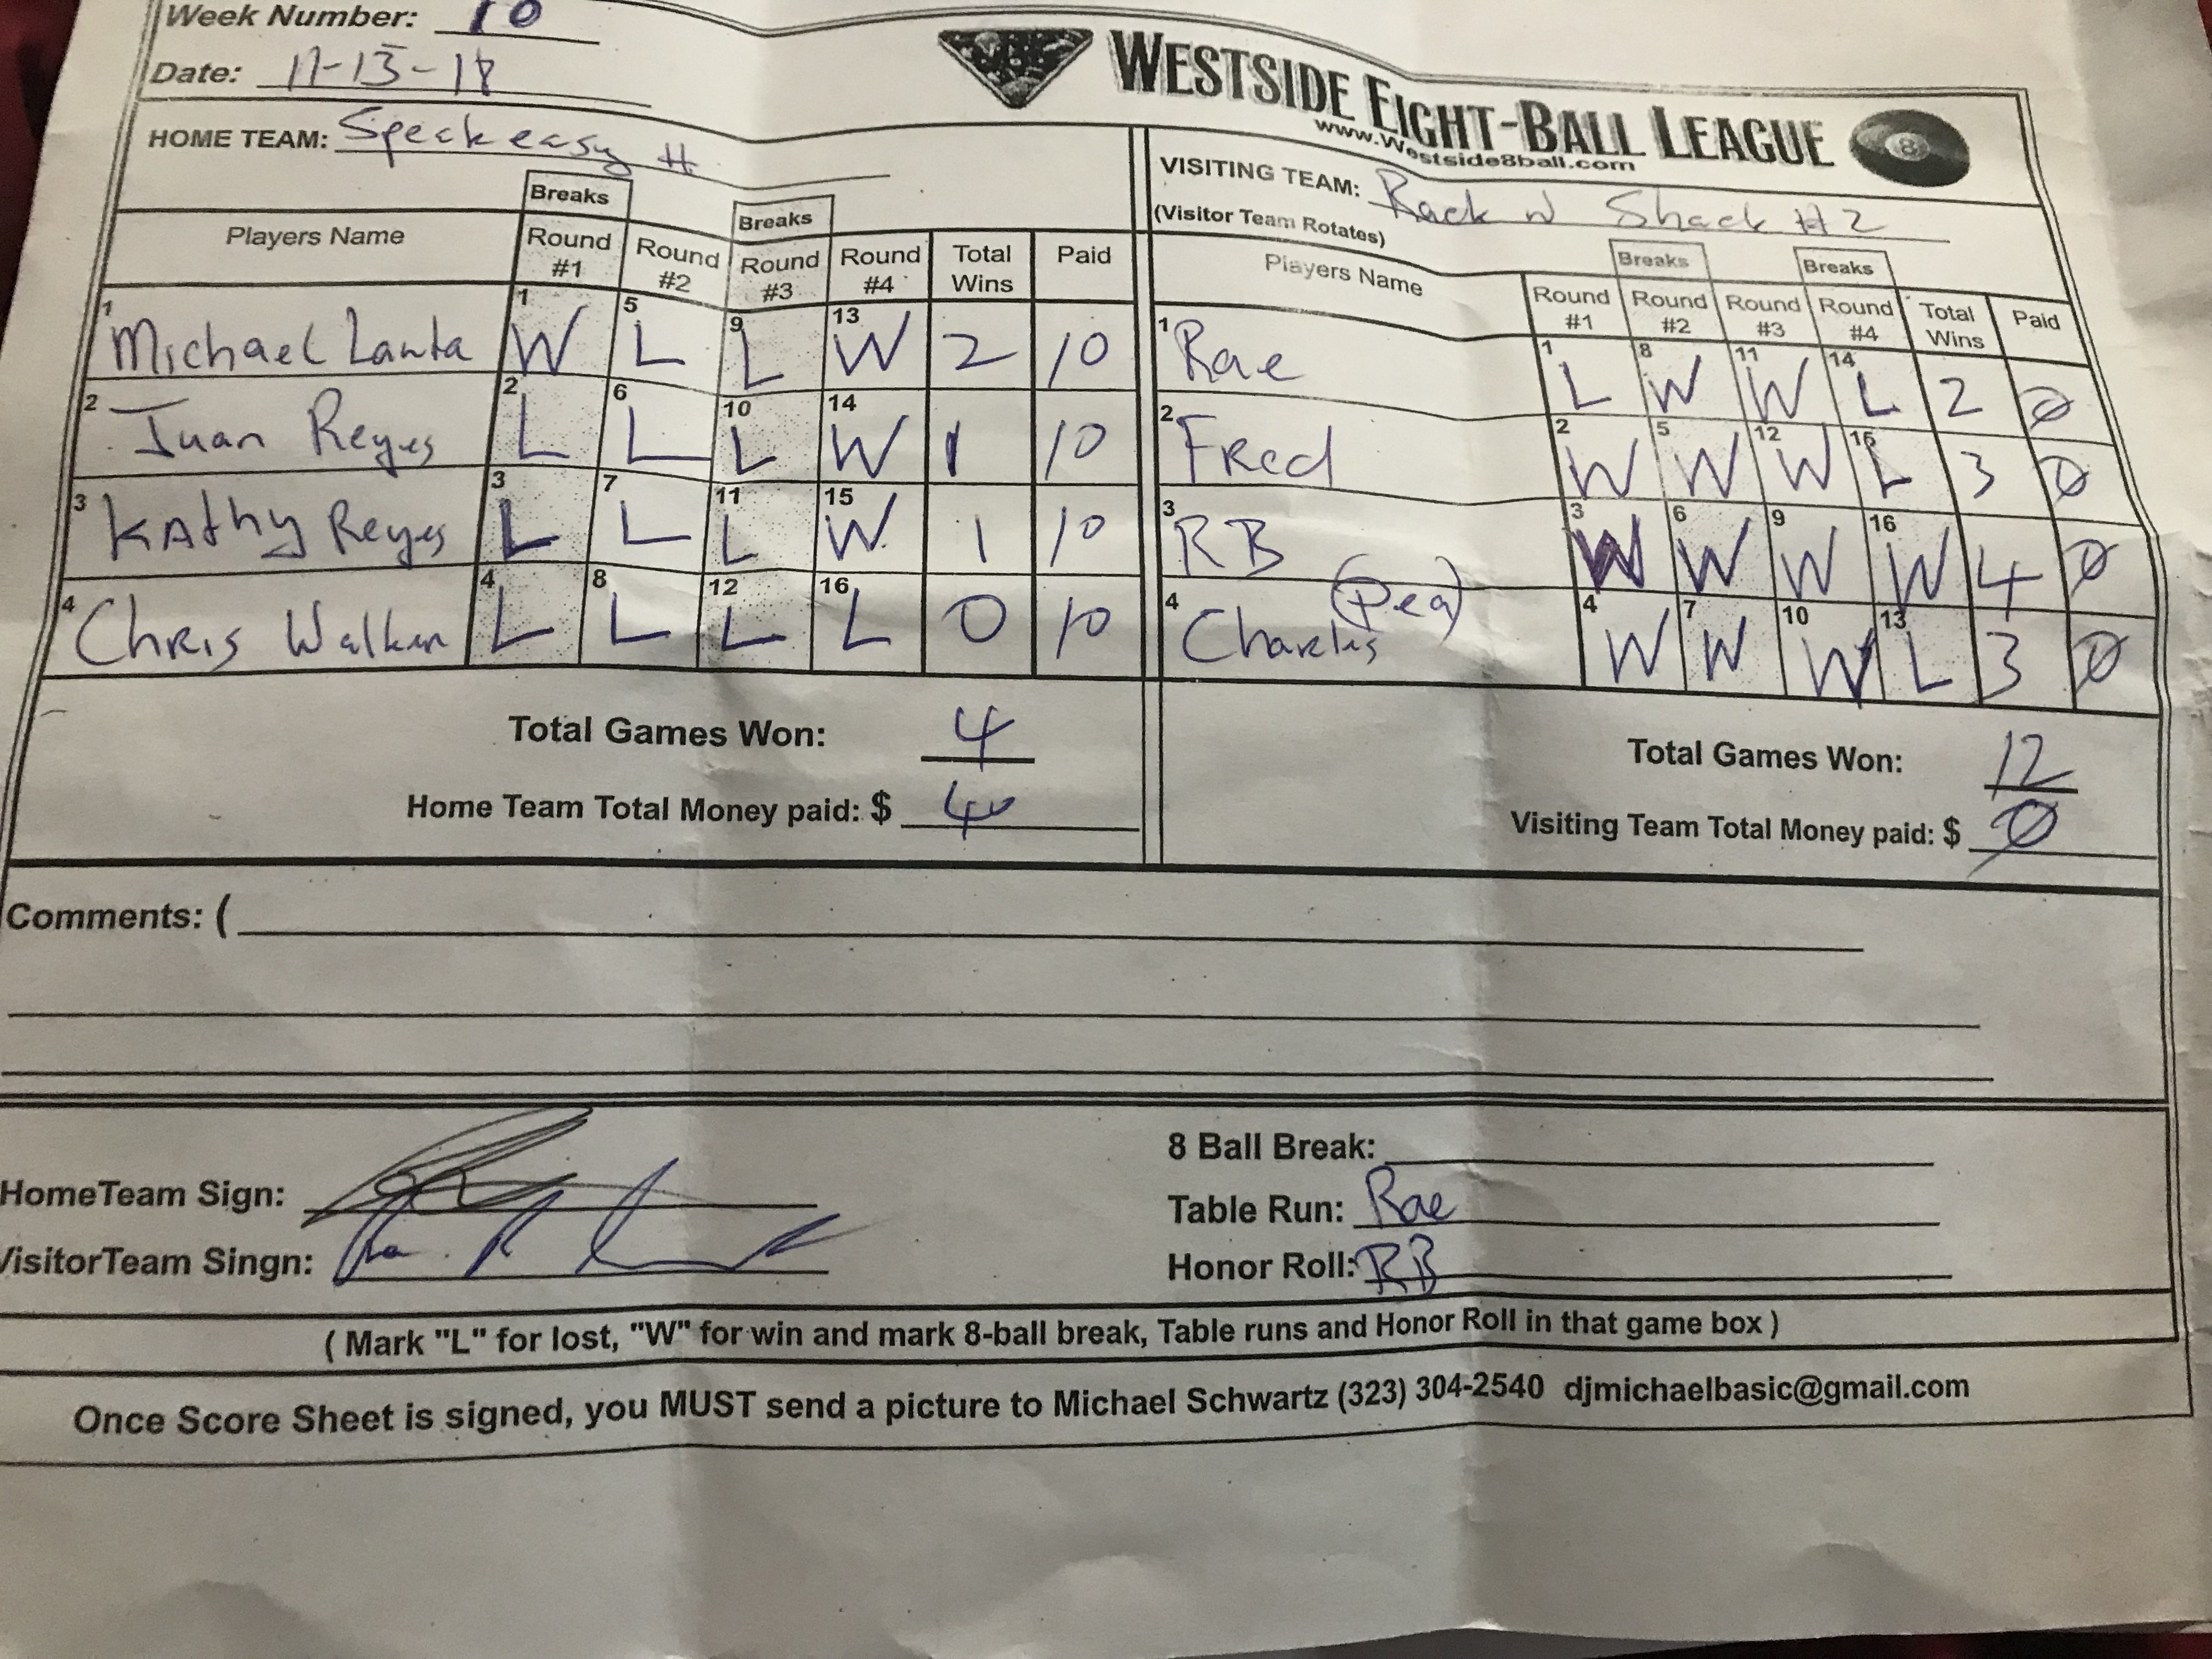 Week Number: 10
Date: 11-13-18
WESTSIDE EIGHT-BALL LEAGUE
www.Westside8ball.com
8
HOME TEAM: Speakeasy #
VISITING TEAM: Rack N Shack #2
(Visitor Team Rotates)
Breaks Breaks
Players Name Round #1 Round #2 Round #3 Round #4 Total Wins Paid
1 Michael Lanta 1 W 5 L 9 L 13 W 2 10
2 Juan Reyes 2 L 6 L 10 L 14 W 1 10
3 Kathy Reyes 3 L 7 L 11 L 15 W 1 10
4 Chris Walker 4 L 8 L 12 L 16 L 0 10
Total Games Won: 4
Home Team Total Money paid: $ 40
Breaks Breaks
Players Name Round #1 Round #2 Round #3 Round #4 Total Wins Paid
1 Rae 1 L 8 W 11 W 14 L 2 0
2 Fred 2 W 5 W 12 W 15 L 3 0
3 RB 3 W 6 W 9 W 16 W 4 0
4 Charles (Peq) 4 W 7 W 10 W 13 L 3 0
Total Games Won: 12
Visiting Team Total Money paid: $ 0
Comments: (
HomeTeam Sign:
VisitorTeam Singn:
8 Ball Break:
Table Run: Rae
Honor Roll: RB
( Mark "L" for lost, "W" for win and mark 8-ball break, Table runs and Honor Roll in that game box )
Once Score Sheet is signed, you MUST send a picture to Michael Schwartz (323) 304-2540 djmichaelbasic@gmail.com